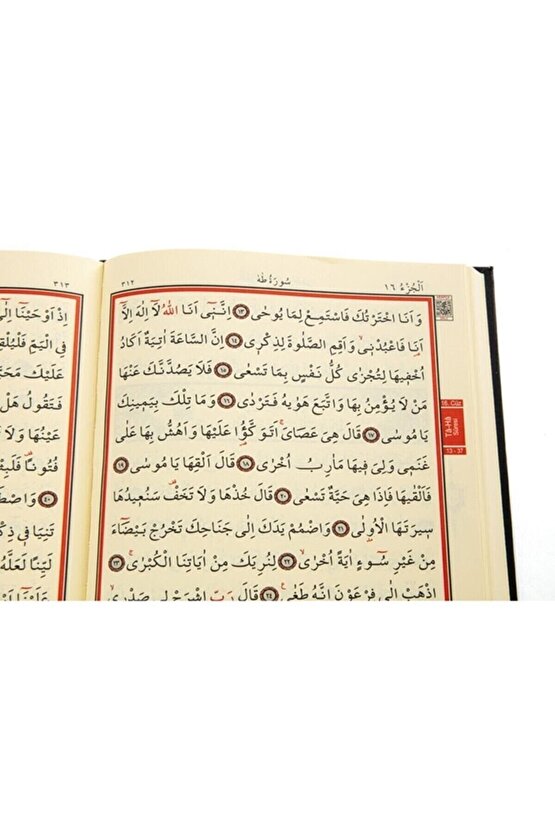 اَلْجُزْءُ ١٦ سُورَةُ طٰهٰ ٣١٢
وَاَنَا اخْتَرْتُكَ فَاسْتَمِعْ لِمَا يُوحٰى ﴿١٣﴾ اِنَّنٖٓى اَنَا اللّٰهُ لَٓا اِلٰهَ اِلَّٓا
اَنَا۬ فَاعْبُدْنٖى وَاَقِمِ الصَّلٰوةَ لِذِكْرٖى ﴿١٤﴾ اِنَّ السَّاعَةَ اٰتِيَةٌ اَكَادُ
اُخْفٖيهَا لِتُجْزٰى كُلُّ نَفْسٍ بِمَا تَسْعٰى ﴿١٥﴾ فَلَا يَصُدَّنَّكَ عَنْهَا
مَنْ لَا يُؤْمِنُ بِهَا وَاتَّبَعَ هَوٰيهُ فَتَرْدٰى ﴿١٦﴾ وَمَا تِلْكَ بِيَمٖينِكَ
يَا مُوسٰى ﴿١٧﴾ قَالَ هِىَ عَصَاىَ اَتَوَكَّؤُ۬ا عَلَيْهَا وَاَهُشُّ بِهَا عَلٰى
غَنَمٖى وَلِىَ فٖيهَا مَاٰرِبُ اُخْرٰى ﴿١٨﴾ قَالَ اَلْقِهَا يَا مُوسٰى ﴿١٩﴾
فَاَلْقٰيهَا فَاِذَا هِىَ حَيَّةٌ تَسْعٰى ﴿٢٠﴾ قَالَ خُذْهَا وَلَا تَخَفْ۠ سَنُعٖيدُهَا
سٖيرَتَهَا الْاُو۫لٰى ﴿٢١﴾ وَاضْمُمْ يَدَكَ اِلٰى جَنَاحِكَ تَخْرُجْ بَيْضَٓاءَ
مِنْ غَيْرِ سُٓوءٍ اٰيَةً اُخْرٰىۙ ﴿٢٢﴾ لِنُرِيَكَ مِنْ اٰيَاتِنَا الْكُبْرٰىۚ ﴿٢٣﴾
اِذْهَبْ اِلٰى فِرْعَوْنَ اِنَّهُ طَغٰى۟ ﴿٢٤﴾ قَالَ رَبِّ اشْرَحْ لٖى صَدْرٖىۙ
16. Cüz
Tâ-Hâ
Sûresi
13 - 37
٣١٣
اِذْ اَوْحَيْنَٓا
فِى الْيَمِّ
عَلَيْكَ
فَتَقُولُ هَلْ
عَيْنُهَا
فُتُونًا
﴿٤٠﴾
تَنِيَا فٖى
لَيِّنًا لَعَلَّهُ
عَلَيْنَٓا